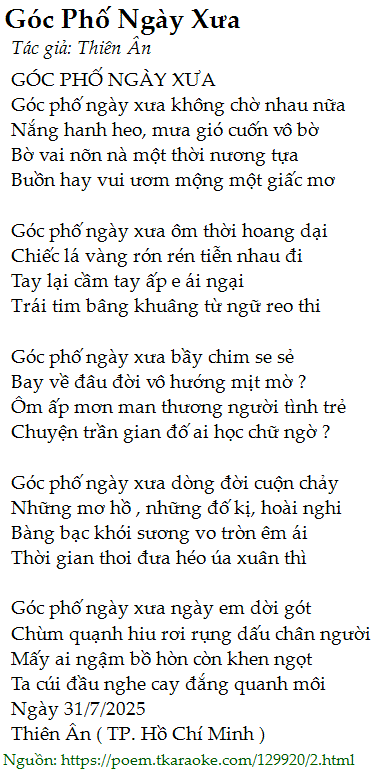 Góc Phố Ngày Xưa
Tác giả: Thiên Ân
GÓC PHỐ NGÀY XƯA
Góc phố ngày xưa không chờ nhau nữa
Nắng hanh heo, mưa gió cuốn vô bờ
Bờ vai nõn nà một thời nương tựa
Buồn hay vui ươm mộng một giấc mơ

Góc phố ngày xưa ôm thời hoang dại
Chiếc lá vàng rón rén tiễn nhau đi
Tay lại cầm tay ấp e ái ngại
Trái tim bâng khuâng từ ngữ reo thi

Góc phố ngày xưa bầy chim se sẻ
Bay về đâu đời vô hướng mịt mờ ?
Ôm ấp mơn man thương người tình trẻ
Chuyện trần gian đố ai học chữ ngờ ?

Góc phố ngày xưa dòng đời cuộn chảy
Những mơ hồ , những đố kị, hoài nghi
Bàng bạc khói sương vo tròn êm ái
Thời gian thoi đưa héo úa xuân thì

Góc phố ngày xưa ngày em dời gót
Chùm quạnh hiu rơi rụng dấu chân người
Mấy ai ngậm bồ hòn còn khen ngọt
Ta cúi đầu nghe cay đắng quanh môi
Ngày 31/7/2025
Thiên Ân ( TP. Hồ Chí Minh )
Nguồn: https://poem.tkaraoke.com/129920/2.html